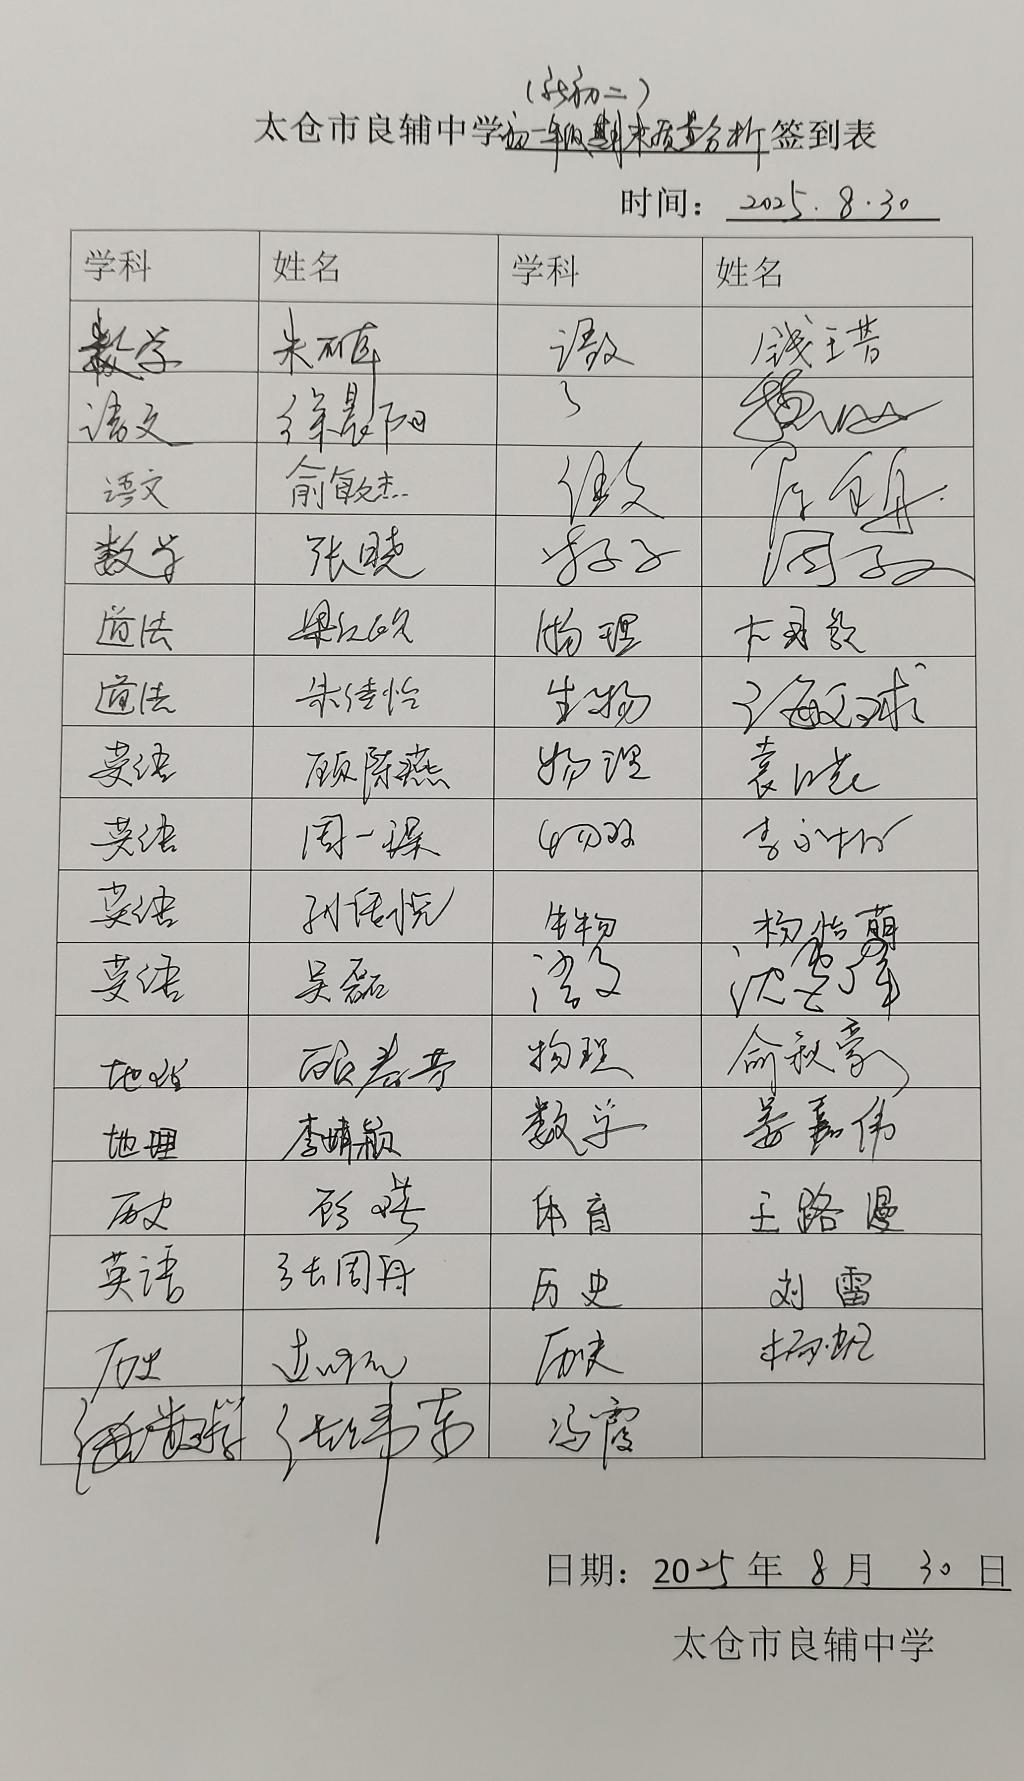 （新初二）
太仓市良辅中学初一年级期末质量分析签到表
时间：2025.8.30
学科 姓名 学科 姓名
数学 朱 语文 钱
语文 徐晨阳
语文 俞敏杰 语文
数学 张晓 周
道法 物理
道法 朱佳怡 生物
英语 顾陈燕 物理 袁晓
英语 周一 物理 李
英语 孙语悦 生物 杨怡萌
英语 吴磊 语文 沈
地理 顾春芳 物理 俞秋豪
地理 李晴颖 数学 姜嘉伟
历史 顾 体育 王路漫
英语 张周丹 历史 刘雷
历史 历史 杨帆
数学 张伟东 冯霞
日期：2025年 8月 30日
太仓市良辅中学